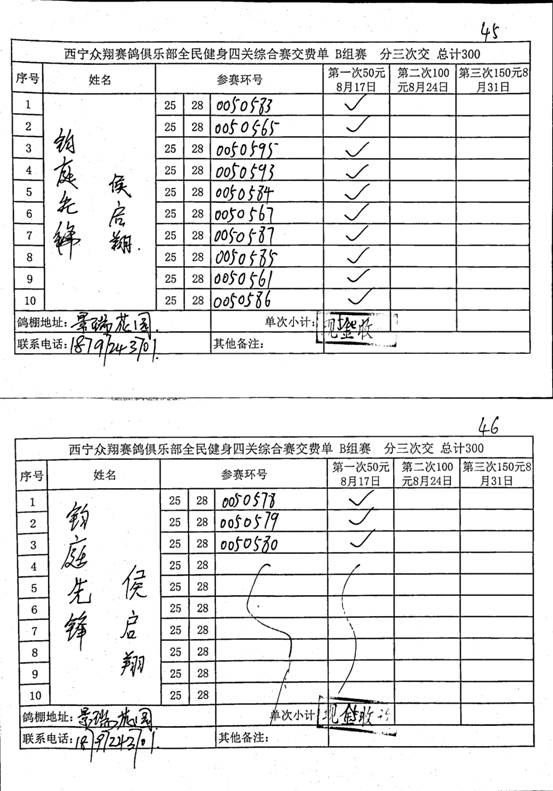 45
西宁众翔赛鸽俱乐部全民健身四关综合赛交费单 B组赛 分三次交 总计300
序号 姓名 参赛环号 第一次50元8月17日 第二次100元8月24日 第三次150元8月31日
钧庭先锋 侯启翔
1 25 28 0050583 ✓
2 25 28 0050565 ✓
3 25 28 0050595 ✓
4 25 28 0050593 ✓
5 25 28 0050584 ✓
6 25 28 0050567 ✓
7 25 28 0050587 ✓
8 25 28 0050585 ✓
9 25 28 0050561 ✓
10 25 28 0050586 ✓
鸽棚地址: 景瑞花园 单次小计: 现金收
联系电话: 18797243701 其他备注:
46
西宁众翔赛鸽俱乐部全民健身四关综合赛交费单 B组赛 分三次交 总计300
序号 姓名 参赛环号 第一次50元8月17日 第二次100元8月24日 第三次150元8月31日
钧庭先锋 侯启翔
1 25 28 0050578 ✓
2 25 28 0050579 ✓
3 25 28 0050580 ✓
4 25 28
5 25 28
6 25 28
7 25 28
8 25 28
9 25 28
10 25 28
鸽棚地址: 景瑞花园 单次小计: 现金收
联系电话: 其他备注: